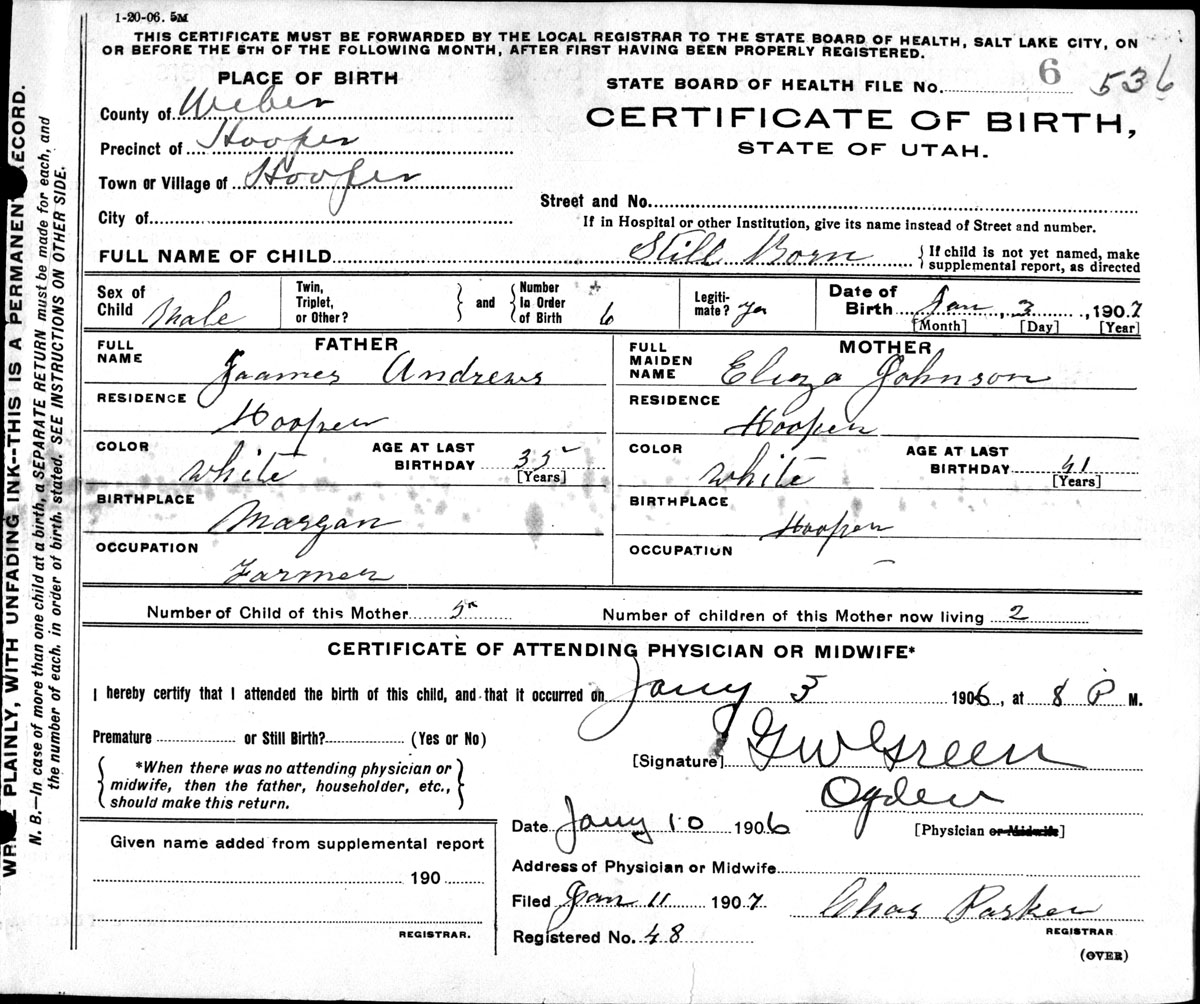 1-20-06. 5M
THIS CERTIFICATE MUST BE FORWARDED BY THE LOCAL REGISTRAR TO THE STATE BOARD OF HEALTH, SALT LAKE CITY, ON
OR BEFORE THE 5TH OF THE FOLLOWING MONTH, AFTER FIRST HAVING BEEN PROPERLY REGISTERED.
PLACE OF BIRTH
STATE BOARD OF HEALTH FILE No. 6 536
County of Weber
CERTIFICATE OF BIRTH,
Precinct of Hooper
STATE OF UTAH.
Town or Village of Hooper
Street and No.
City of
If in Hospital or other Institution, give its name instead of Street and number.
FULL NAME OF CHILD Still Born { If child is not yet named, make supplemental report, as directed
Sex of Child Male Twin, Triplet, or Other? } and { Number In Order of Birth 6 Legitimate? yes Date of Birth Jan, 3, 1907
[Month] [Day] [Year]
FATHER
MOTHER
FULL NAME Jaames Andrews
FULL MAIDEN NAME Eliza Johnson
RESIDENCE Hooper
RESIDENCE Hooper
COLOR white AGE AT LAST BIRTHDAY 35 [Years]
COLOR white AGE AT LAST BIRTHDAY 41 [Years]
BIRTHPLACE Margan
BIRTHPLACE Hooper
OCCUPATION Farmer
OCCUPATION –
Number of Child of this Mother 5 Number of children of this Mother now living 2
CERTIFICATE OF ATTENDING PHYSICIAN OR MIDWIFE*
I hereby certify that I attended the birth of this child, and that it occurred on Jany 3 1906, at 8 P M.
Premature or Still Birth? (Yes or No)
[Signature] G W Green
{ *When there was no attending physician or midwife, then the father, householder, etc., should make this return. }
Ogden
Date Jany 10 1906 [Physician or Midwife]
Given name added from supplemental report
190
REGISTRAR.
Address of Physician or Midwife
Filed Jan 11 1907 Chas Parker
REGISTRAR
Registered No. 48
(OVER)
PLAINLY, WITH UNFADING INK--THIS IS A PERMANENT RECORD.
N. B.—In case of more than one child at a birth, a SEPARATE RETURN must be made for each, and
the number of each, in order of birth, stated. SEE INSTRUCTIONS ON OTHER SIDE.